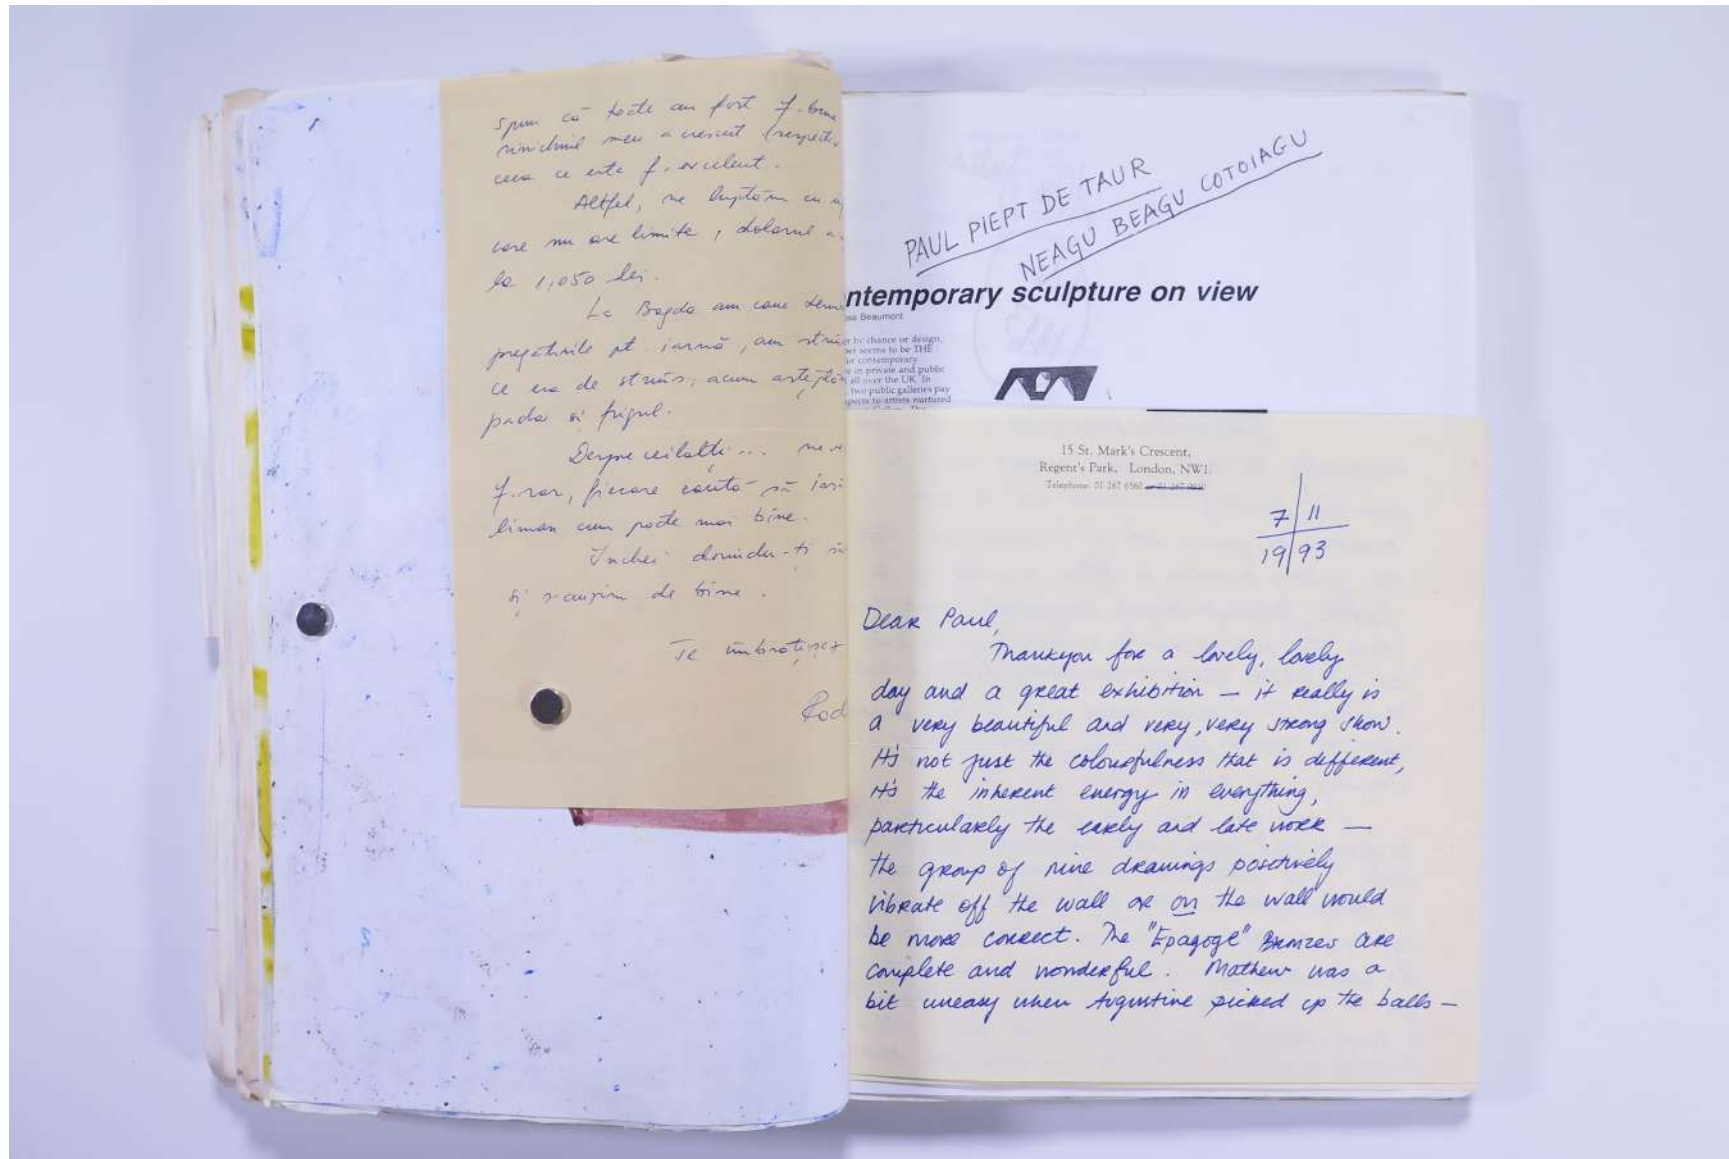 spun că toate au fost f. bune
rinichiul meu a crescut (respectiv
ceea ce este f. excelent.
Altfel, ne luptăm cu
care nu are limite, dolarul a
la 1,050 lei.
La Bogda am cam
pregătirile pt. iarnă, am
ce era de strâns, acum
și frigul.
Despre ceilalți...
f. rar, fiecare caută să
liman cum poate mai bine.
Închei dorindu-ți
și s-auzim de bine.
Te îmbrățișez
Rod
PAUL PIEPT DE TAUR
NEAGU BEAGU COTOIAGU
ntemporary sculpture on view
Beaumont
by chance or design,
seems to be THE
contemporary
in private and public
all over the UK. In
two public galleries pay
to artists nurtured
15 St. Mark's Crescent,
Regent's Park, London, NW1.
Telephone: 01-267 6560
7 11
19 93
Dear Paul,
Thankyou for a lovely, lovely
day and a great exhibition — it really is
a very beautiful and very, very strong show.
It's not just the colourfulness that is different,
it's the inherent energy in everything,
particularly the early and late work —
the group of nine drawings positively
vibrate off the wall or on the wall would
be more correct. The "Epagoge" Bronzes are
complete and wonderful. Mathew was a
bit uneasy when Augustine picked up the balls —